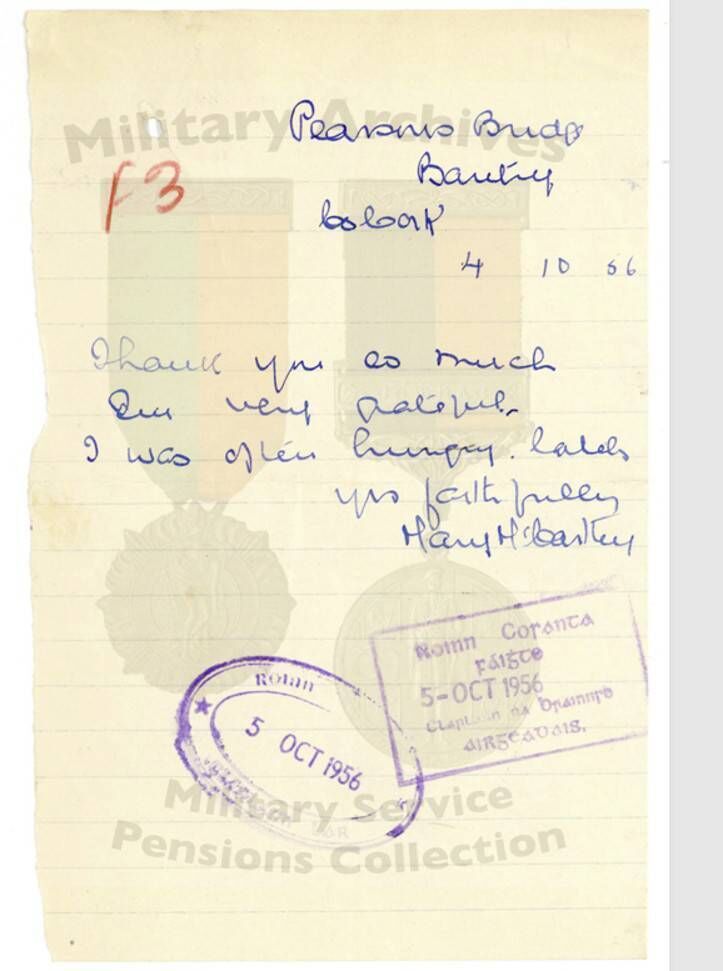 Military Archives
Pearsons Bridge
Bantry
Co Cork
F3
4 10 56
Thank you so much
Im very grateful.
I was often hungry. lately
yrs faithfully
Mary McCarthy
Roinn Cosanta
Fáigte
5-OCT 1956
na Brainnre
AIRGEADAIS.
ROINN
5 OCT 1956
Military Service
Pensions Collection